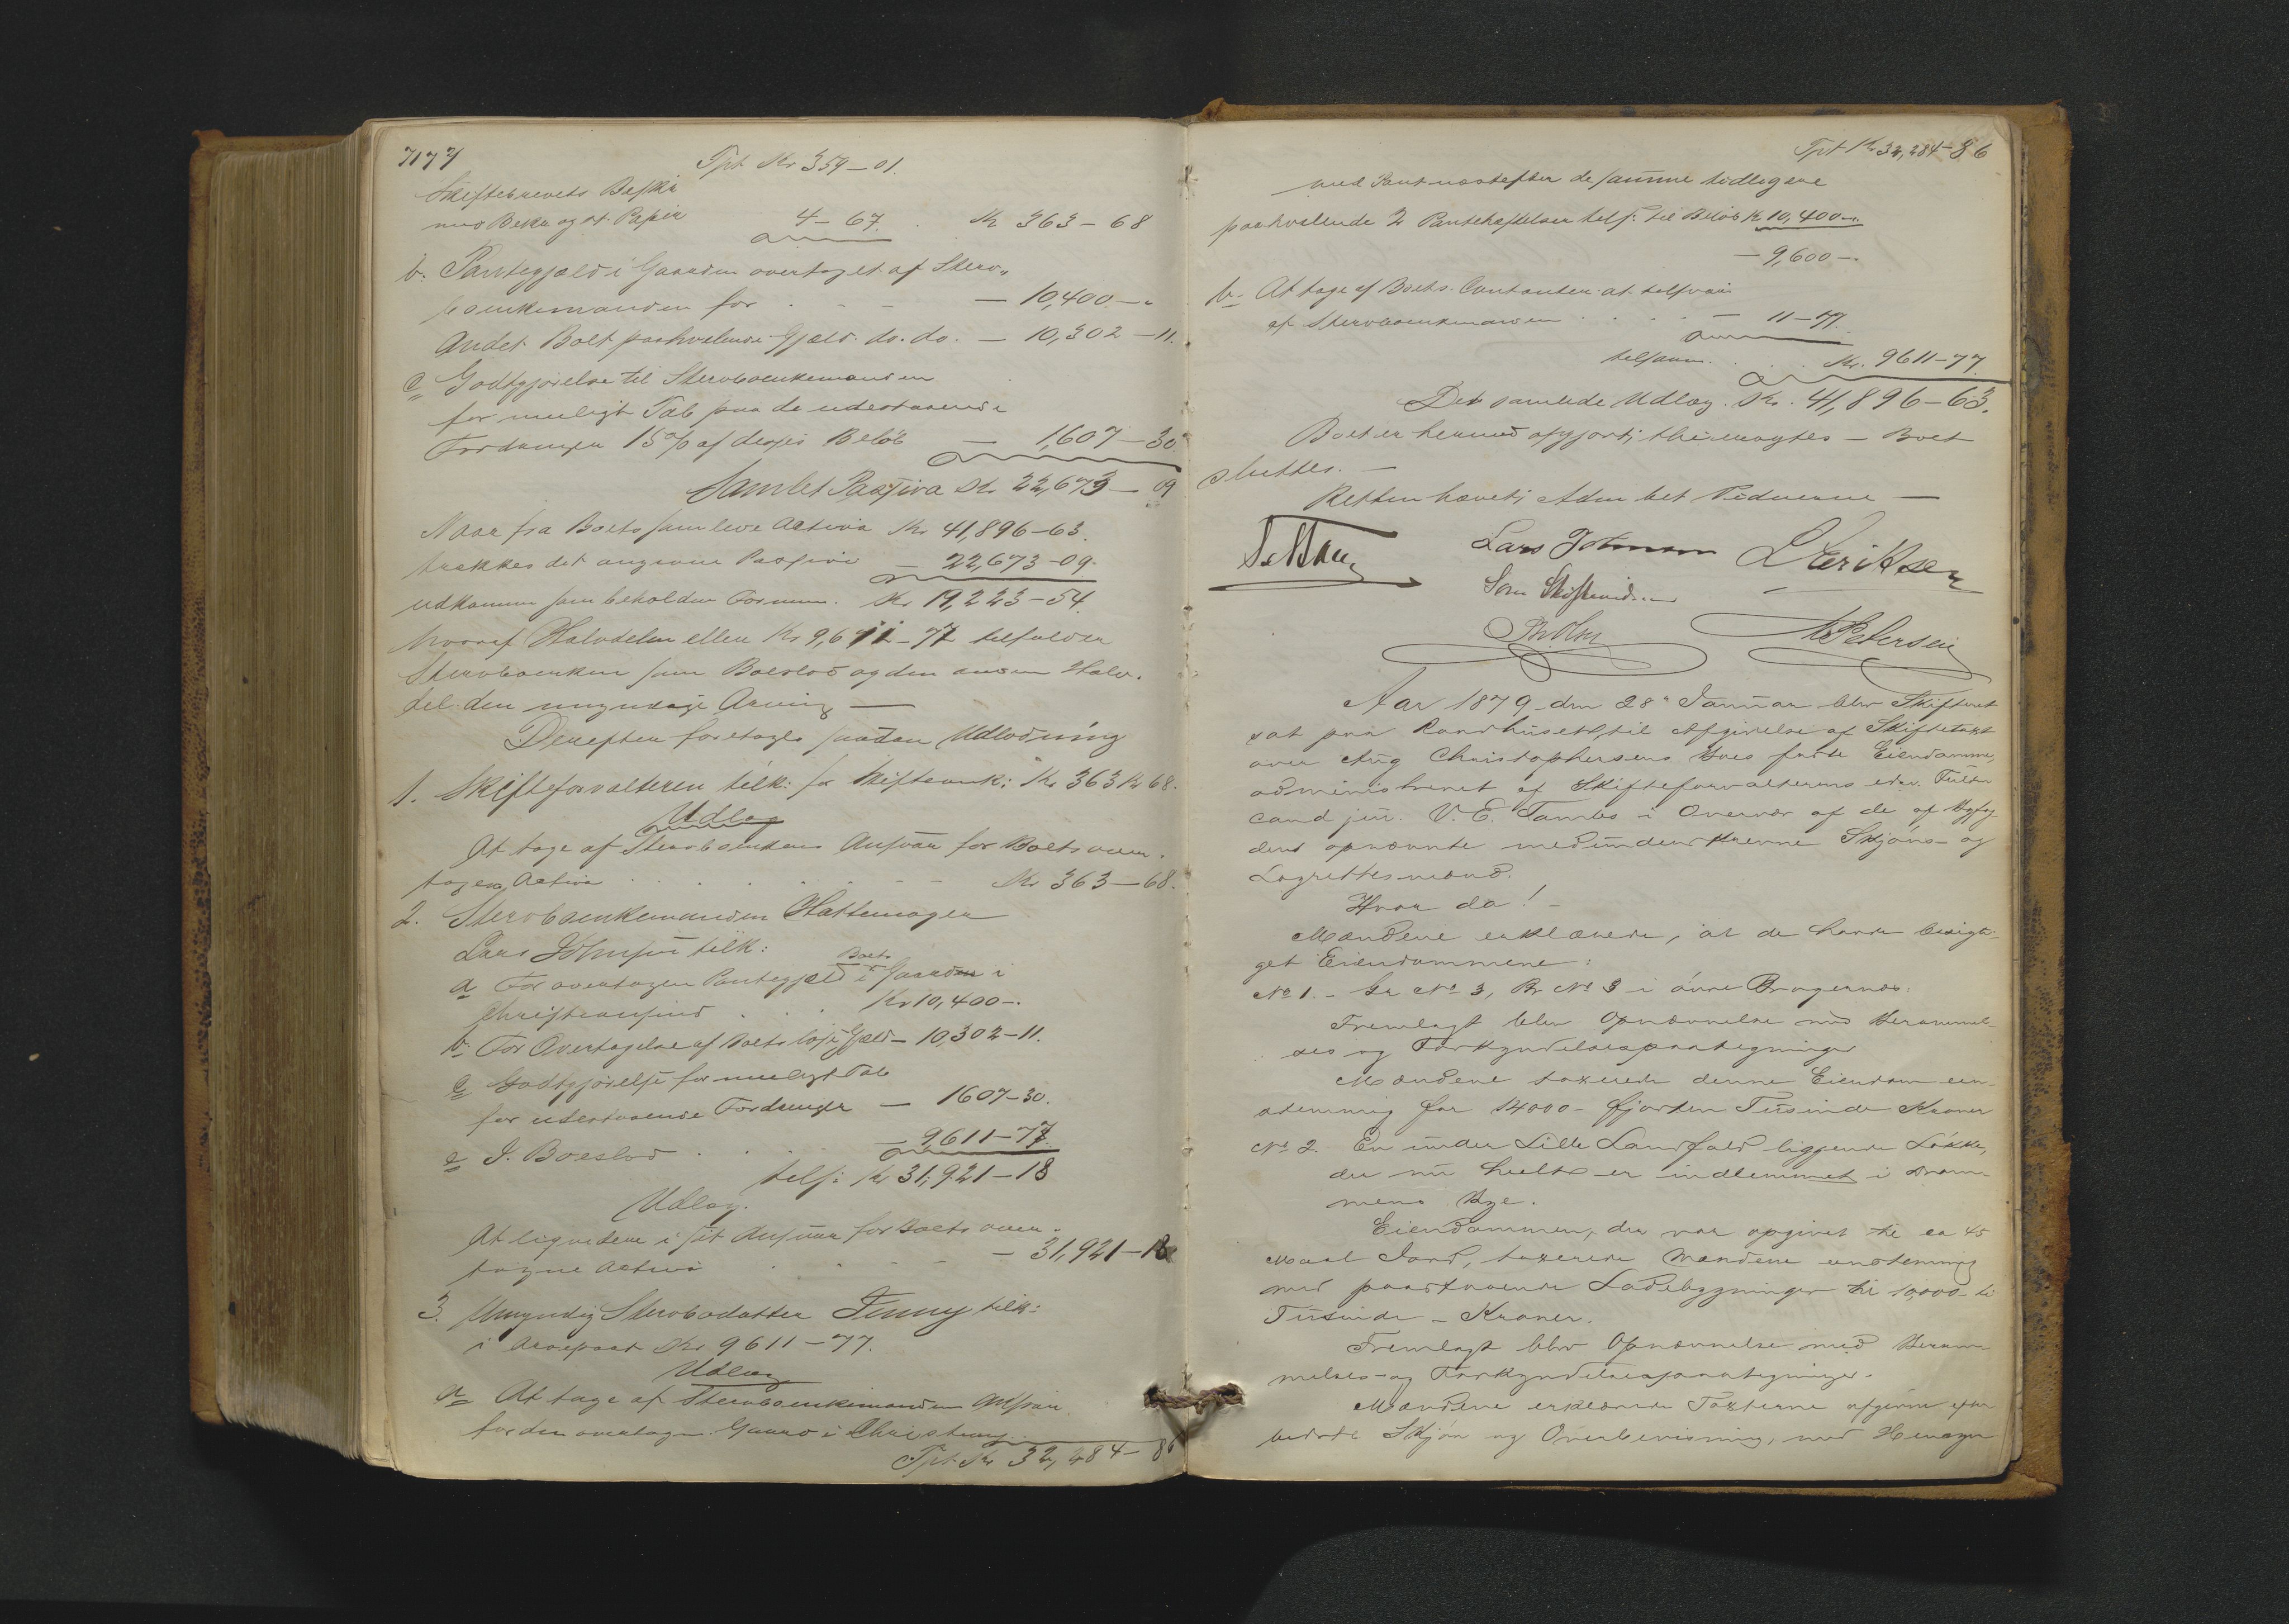 7177
Tpt Kr 359-01.
Skiftebrevets Beskr
med Bekr og st. Papir 4-67. Kr 363-68
b. Pantegjæld i Gaarden overtaget af Sterv„
boenkemanden for - 10,400-„
Andet Boet paahvilende Gjæld do. do. - 10,302-11.
c Godtgjørelse til Stervboenkemanden
for mueligt Tab paa de udestaaende
Fordringer 15% af disses Beløb - 1,607-30.
Samlet Passiva Kr. 22,673-09
Naar fra Boets samlede Activa Kr 41,896-63.
trækkes det angivne Passiva - 22,673-09.
udkommer som beholden Formue. Kr 19,223-54.
hvoraf Halvdelen eller Kr 9,611-77 tilfalder
Stervboenken som Boeslod og den anden Halv.
del den umyndige Arving —
Derefter foretoges saadan Udlodning
1. Skifteforvalteren tilk: for Skifteomk: Kr 363 Kr 68.
Udlæg
At tage af Stervboenkens Ansvar for Boets over.
tagen Activa Kr 363-68.
2. Stervboenkemanden Hattemager
Lars Johnsen tilk:
a For overtagen Pantegjæld i Boets Gaard i
Christiansund Kr 10,400-.
b: For Overtagelse af Boets løse Gjæld - 10,302-11.
c Godtgjørelse for mueligt Tab
for udestaaende Fordringer - 1607-30.
d I. Boeslod - 9,611-77.
tils: Kr 31,921-18
Udlæg.
At liqvidere i sit Ansvar for Boets over-
tagne Activa - 31,921-18
3. Umyndig Stervbodatter Jenny tilk:
i Arvepart Kr 9611-77.
Udlæg
a At tage af Stervboenkemanden Ansvar
for den overtagne Gaard i Christians
Tpt. Kr 32,284-86
Tpt Kr 32,284-86
med Pant næstefter de samme tidligere
paahvilende 2 Pantehæftelser tils: til Beløb Kr 10,400-.
- 9,600-.
b. At tage af Boets Contanter at tilsvare
af Stervboenkemanden - 11-77.
tilsam. Kr. 9611-77.
Det samlede Udlæg. Kr. 41,896-63.
Boet er hermed afgjort, thi eragtes - Boet
sluttes. —
Retten hævet; Aden het Vidnerne —
Lars Johnson L Eriksen
Som Skiftevidner
Ph Olsen M Petersen
Aar 1879 den 28de Januar blev Skifteret
sat paa Raadhuset, til Afgivelse af Skiftetaxt
over Aug Christophersens Boes faste Eiendomme,
administreret af Skifteforvalterens edsv. Fuldm
cand jur. V. E. Tambs i Overvær af de af Byfog-
den opnævnte medunderskrevne Skjøns- og
Lagrettesmænd.
Hvor da! -
Mændene erklærede, at de havde besigti-
get Eiendommene:
No 1. - Gr No 3, Br No 3 i øvre Bragernæs:
Fremlagt blev Opnævnelse med Berammel-
ses og Forkyndelsespaategninger
Mændene taxerede denne Eiendom een-
stemmig for 14000- fjorten Tusinde Kroner
No 2. En under Lille Landfald liggende Løkke,
der nu heelt er indlemmet i Dram-
mens Bye.
Eiendommen, der var opgivet til ca 45
Maal Jord, taxerede Mændene eenstemmig
med paastaaende Ladebygninger til 10,000- ti
Tusinde - Kroner.
Fremlagt blev Opnævnelse med Beram-
melses- og Forkyndelsespaategninger.
Mændene erklærede Taxterne afgivne efter
bedste Skjøn og Overbevisning, med Hensyn